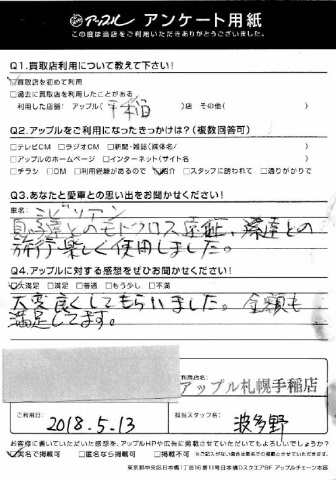 アップル アンケート用紙
この度は当店をご利用いただきありがとうございました。
Q1.買取店利用について教えて下さい!
買取店を初めて利用
□過去に買取店を利用したことがある
利用した店舗: アップル( 手稲 )店 その他( )
Q2.アップルをご利用になったきっかけは?(複数回答可)
□テレビCM □ラジオCM □新聞・雑誌(媒体名/ )
□アップルのホームページ □インターネット(サイト名 )
□チラシ □DM □利用経験があるので 紹介 □スタッフに誘われて □通りがかりで
Q3.あなたと愛車との思い出をお聞かせください!
車名:
達とのモトクロス 達との
旅行 楽しく使用しました。
Q4.アップルに対する感想をぜひお聞かせください!
大満足 □満足 □普通 □もう少し □不満
大変良くしてもらいました。金額も
満足してます。
利用店名:
アップル札幌手稲店
ご利用日: 2018.5.13
担当スタッフ名: 波多野
お客様に書いていただいた感想を、アップルHPや広告に掲載させていただいてもよろしいでしょうか?
実名で掲載可 □匿名なら掲載可 □掲載不可
東京都中央区日本橋1丁目16番11号日本橋Dスクエア8F アップルチェーン本部